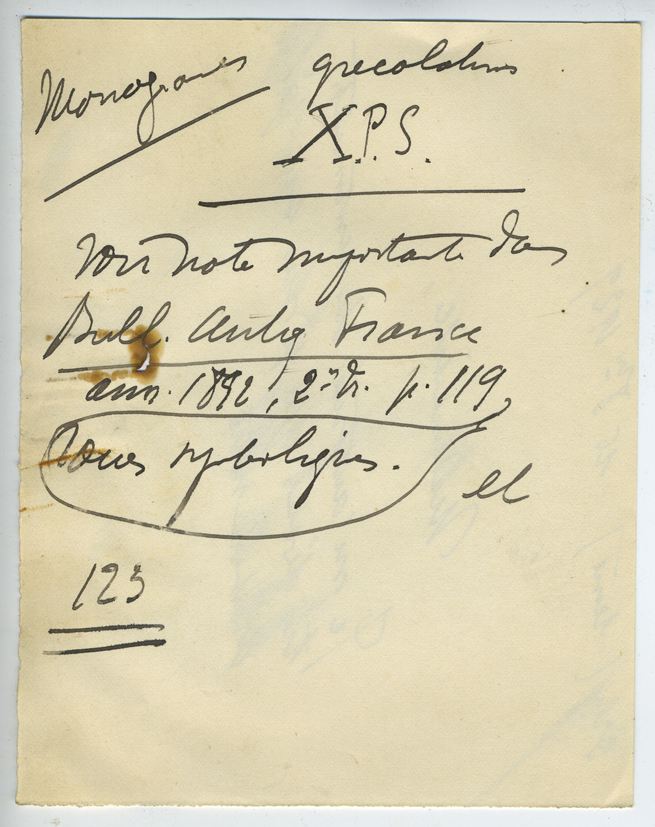 Monogrammes grecolatins
X.P.S.
Voir note importante dans
Bull. Antiq France
ann. 1892, 2e tr. p. 119,
symboliques.
et
123